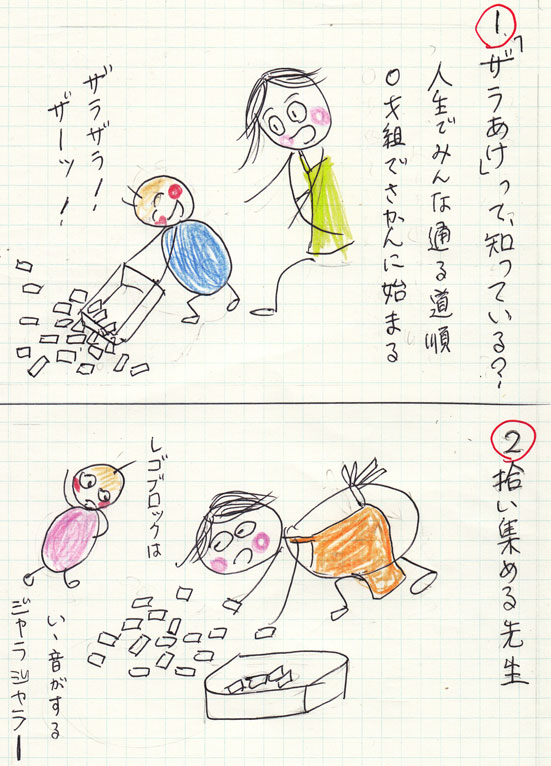 1 「ザラあけ」って、知っている?
人生でみんな通る道順
0才組でさかんに始まる
ザラザラ!
ザーッ!
2 拾い集める先生
レゴブロックは
いゝ音がする
ジャラジャラー